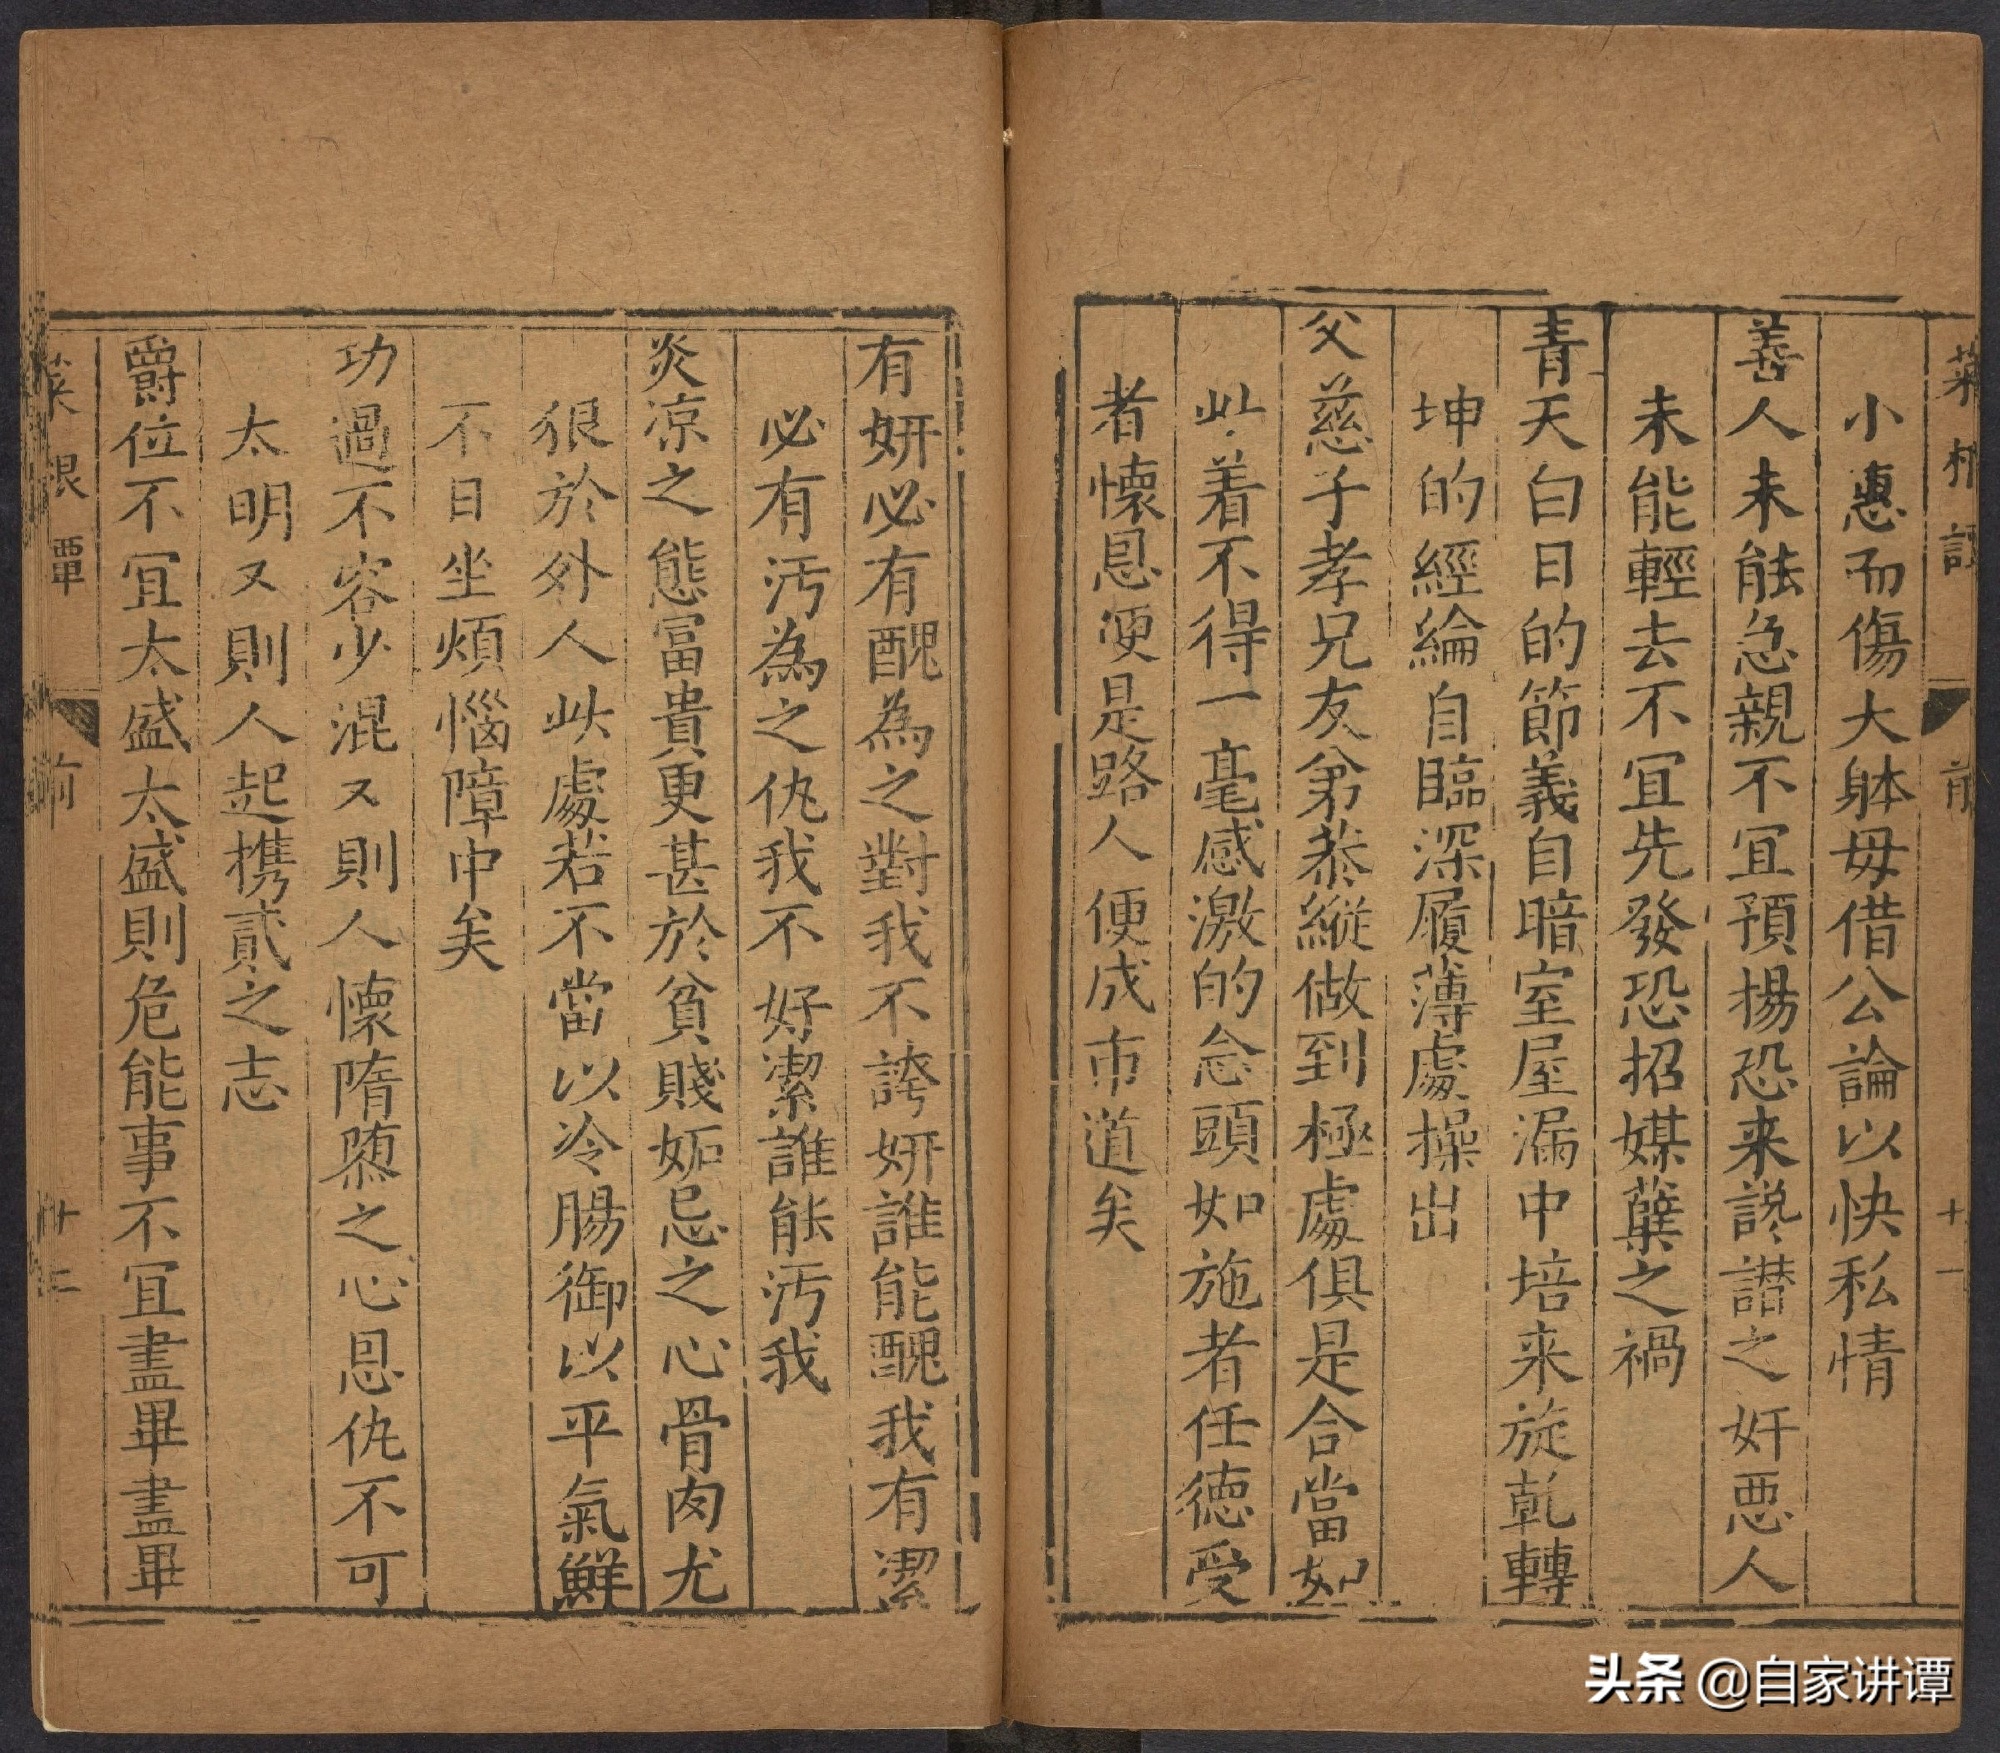 菜根譚 前 十一
小惠而傷大躰毋借公論以快私情
善人未能急親不宜預揚恐来讒譖之奸悪人
未能輕去不宜先發恐招媒蘖之禍
青天白日的節義自暗室屋漏中培来旋乹轉
坤的經綸自臨深履薄處操出
父慈子孝兄友弟恭縱做到極處俱是合當如
此着不得一毫感激的念頭如施者任徳受
者懷恩便是路人便成市道矣
有妍必有醜為之對我不誇妍誰能醜我有潔
必有汚為之仇我不好潔誰能汚我
炎凉之態富貴更甚於貧賤妬忌之心骨肉尤
狠於外人此處若不當以冷腸御以平氣鮮
不日坐煩惱障中矣
功過不容少混混則人懷隋堕之心恩仇不可
太明明則人起携貳之志
爵位不宜太盛太盛則危能事不宜盡畢盡畢
菜根譚 前 十二
头条 @自家讲谭